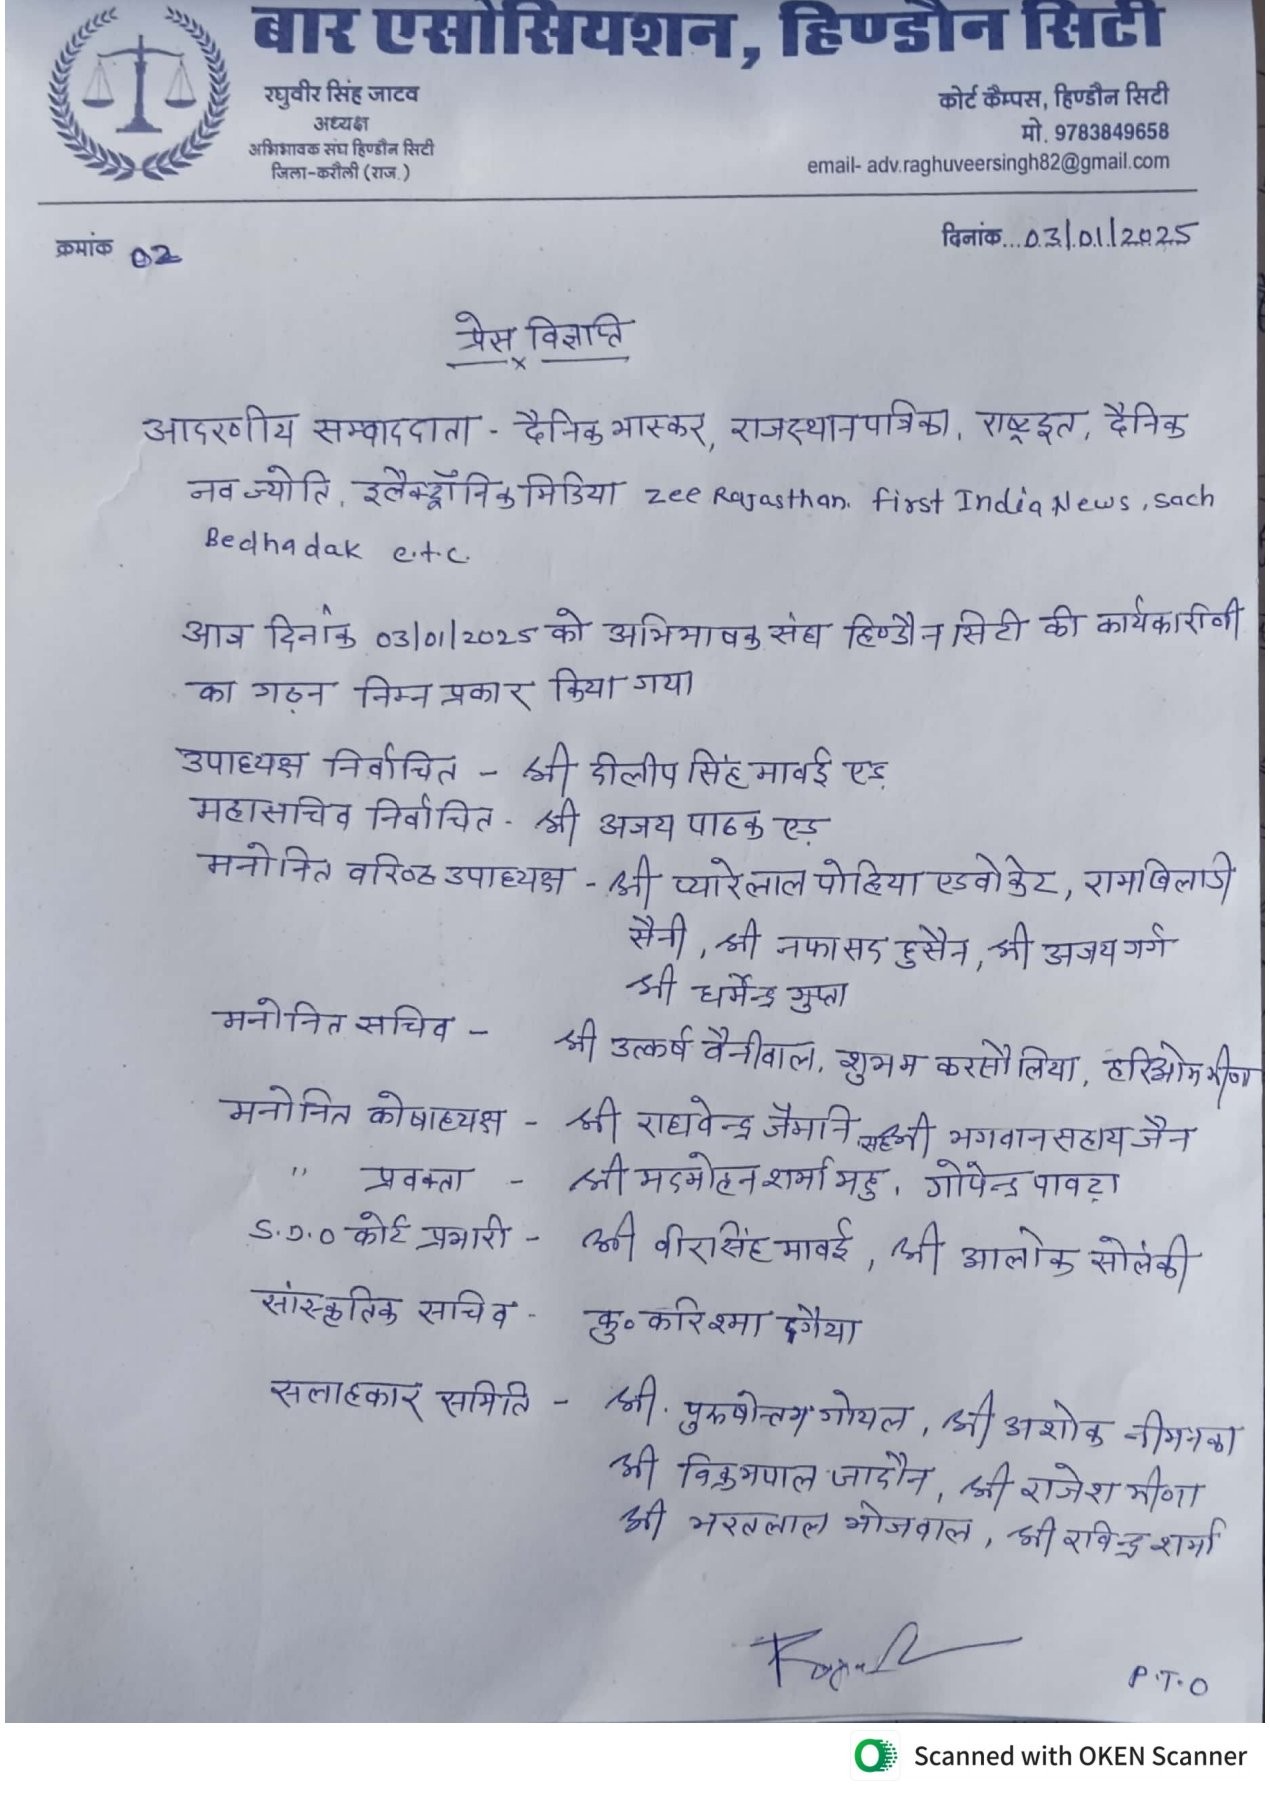 बार एसोसियशन, हिण्डौन सिटी
रघुवीर सिंह जाटव
अध्यक्ष
अभिभावक संघ हिण्डौन सिटी
जिला-करौली (राज.)
कोर्ट कैम्पस, हिण्डौन सिटी
मो. 9783849658
email- adv.raghuveersingh82@gmail.com
क्रमांक 02
दिनांक...03/01/2025
प्रेस विज्ञप्ति
आदरणीय सम्वाददाता - दैनिक भास्कर, राजस्थान पत्रिका, राष्ट्रदूत, दैनिक
नव ज्योति, इलैक्ट्रॉनिक मिडिया Zee Rajasthan. First India News, Sach
Bedhadak e.t.c.
आज दिनांक 03/01/2025 को अभिभावक संघ हिण्डौन सिटी की कार्यकारीणी
का गठन निम्न प्रकार किया गया
उपाध्यक्ष निर्वाचित - श्री दीलीप सिंह मावई एड
महासचिव निर्वाचित - श्री अजय पाठक एड
मनोनित वरिष्ठ उपाध्यक्ष - श्री प्यारेलाल पोहिया एडवोकेट, रामखिलाडी
सैनी, श्री नफासद हुसैन, श्री अजय गर्ग
श्री धर्मेन्द्र गुप्ता
मनोनित सचिव - श्री उत्कर्ष वैनीवाल, शुभम करसौलिया, हरिओम मीणा
मनोनित कोषाध्यक्ष - श्री राघवेन्द्र जैमनि, सह श्री भगवान सहाय जैन
" प्रवक्ता - श्री मदमोहन शर्मा महु, गोपेन्द्र पावटा
S.D.O कोर्ट प्रभारी - श्री वीरसिंह मावई, श्री आलोक सोलंकी
सांस्कृतिक सचिव - कु० करिश्मा दगैया
सलाहकार समिति - श्री. पुरूषोत्तम गोयल, श्री अशोक नीमनका
श्री विक्रमपाल जादौन, श्री राजेश मीणा
श्री भरतलाल भोजवाल, श्री रविन्द्र शर्मा
P.T.O
Scanned with OKEN Scanner